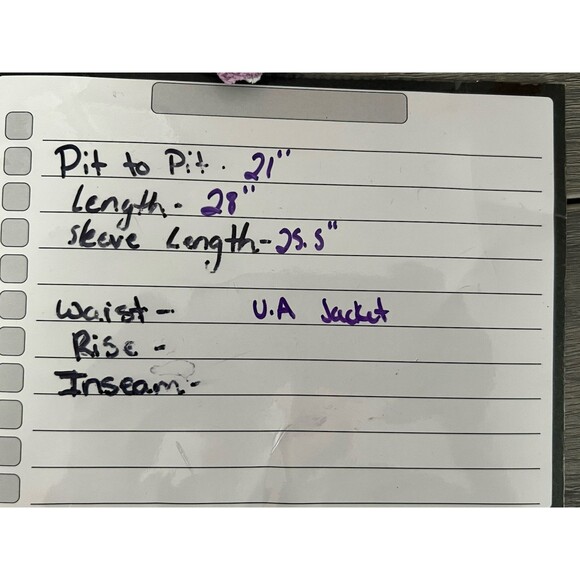 Pit to Pit. 21"
Length - 28"
Sleeve Length - 25.5"
Waist - U.A Jacket
Rise -
Inseam -